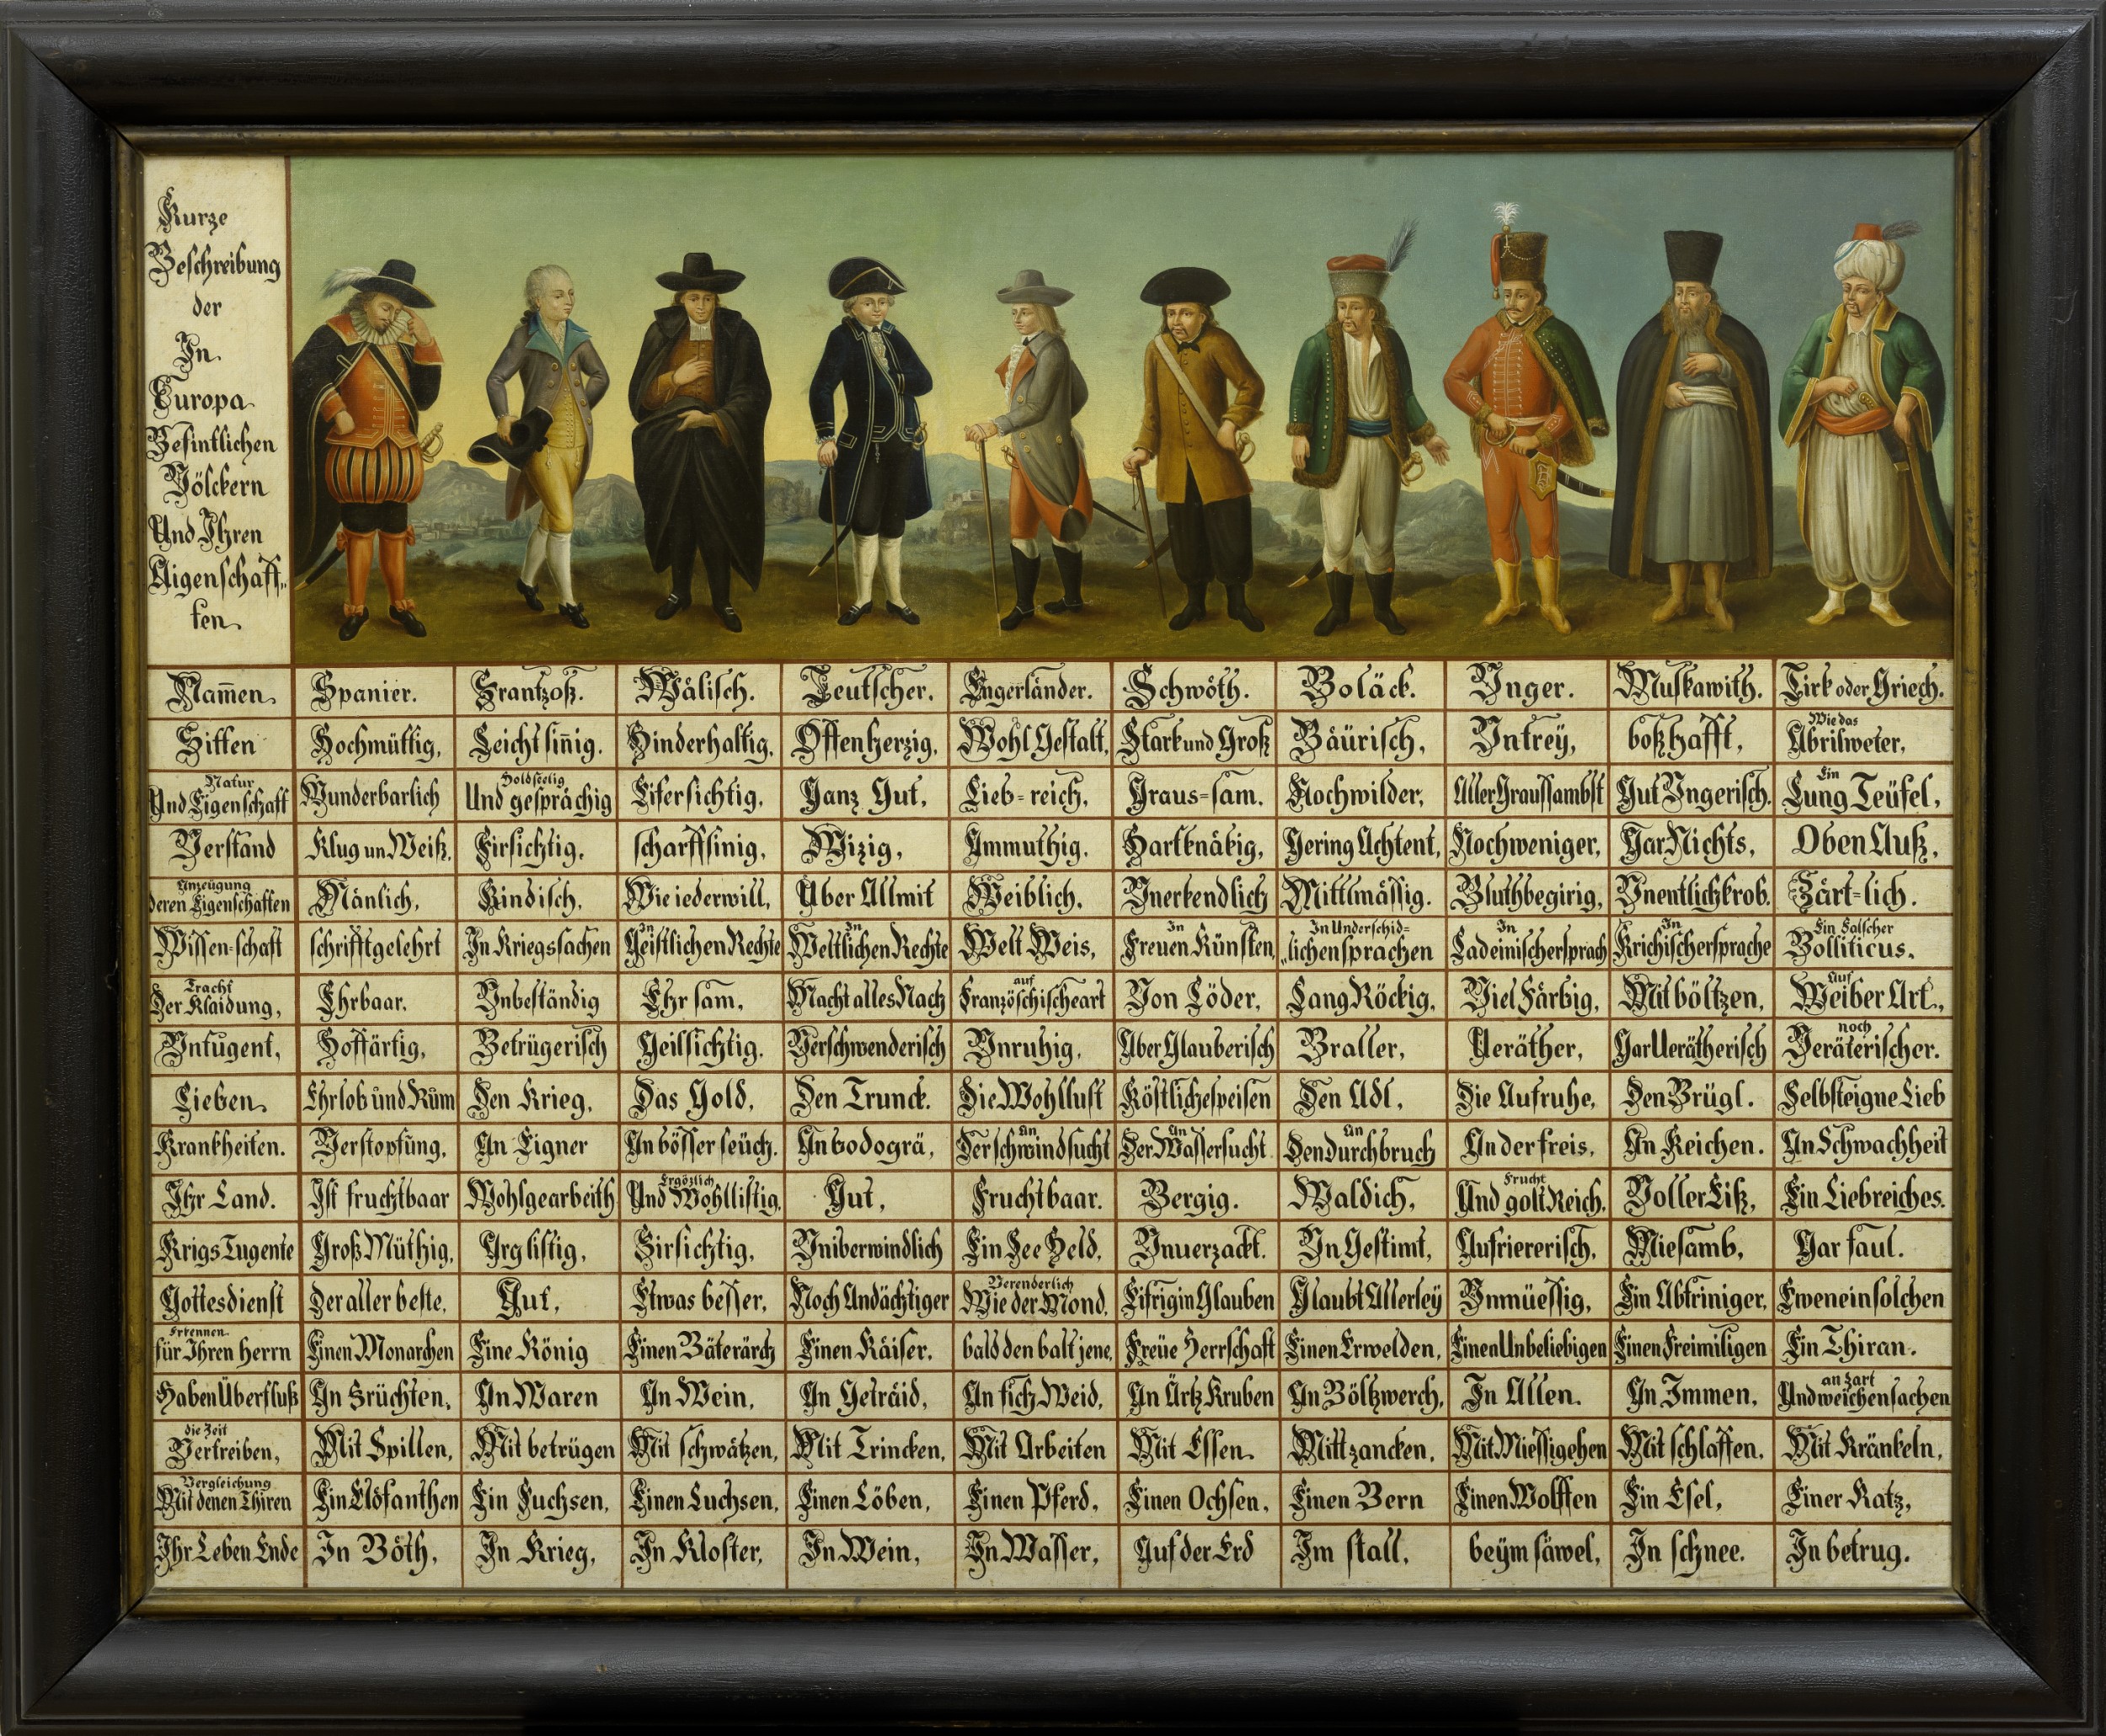 Kurze
Beschreibung
der
In
Europa
Befintlichen
Völckern
Und Ihren
Aigenschaff„
ten.
Nam̄en. Spanier. Frantzoß. Wälisch. Teutscher. Engerländer. Schwöth. Boläck. Vnger. Muskawith. Tirk oder Griech.
Sitten Hochmüttig, Leicht sin̄ig. Hinderhaltig, Offen herzig, Wohl Gestalt, Stark und Groß Bäürisch, Vntrey, boßhafft, Wie das Abrilweter,
Natur Und Eigenschaft Wunderbarlich Holdseelig Und gesprächig Eifersichtig, Ganz Gut, Lieb=reich, Graus=sam. Nochwilder, Aller Graussambst Gut Vngerisch. Ein Lung Teüfel,
Verstand Klug un Weiß, Firsichtig, scharffsinig, Wizig, Ammuthig, Hartknäkig, Gering Achtent, Nochweniger, Gar Nichts, Oben Auß,
Anzeügung deren Eigenschaften Mänlich, Kindisch, Wie iederwill, Über Allmit Weiblich, Vnerkendlich Mittlmässig. Bluthbegirig, Vnentlichkrob. Zärt=lich.
Wissen=schaft schrifftgelehrt In Kriegssachen In Geistlichen Rechte In Weltlichen Rechte Welt Weis, In Freuen Künsten, In Underschid= „lichen sprachen In Ladeinischersprach In Krichischersprache Ein Falscher Bolliticus.
Tracht Der Klaidung, Ehrbaar. Vnbeständig Ehr sam, Macht alles Nach auf Französchischeart Von Löder, Lang Röckig, Viel Färbig, Mit böltzen, Auf Weiber Art.,
Vntugent, Hoffärtig, Betrügerisch Geilsichtig. Verschwenderisch Vnruhig, Aber Glauberisch Braller, Veräther, Gar Verätherisch noch Veräterischer.
Lieben. Ehrlob und Rům Den Krieg, Das Gold, Den Trunck. Die Wohllust Köstlichespeisen Den Adl, Die Aufruhe, Den Brügl. Selbsteigne Lieb
Krankheiten. Verstopfung, An Eigner An bösser seüch. An bodogrä, An Der schwindsucht An Der Wassersucht An Den durchbruch An der freis, An Keichen. An Schwachheit
Ihr Land. Ist fruchtbaar Wohlgearbeith Ergözlich Und Wohllistig, Gut, Fruchtbaar. Bergig. Waldich, Frucht Und golt Reich, Voller Eiß, Ein Liebreiches.
Krigs Tugente Groß Müthig, Arg listig, Firsichtig, Vniberwindlich Ein See Held, Vnuerzackt. Vn Gestimt, Aufriererisch, Miesamb, Gar faul.
Gottesdienst Der aller beste, Gut, Etwas besser, Noch Andächtiger Verenderlich Wie der Mond, Eifrig in Glauben Glaubt Allerley Vnmüessig, Ein Abtriniger, Eweneinsolchen
Erkennen für Ihren Herrn Einen Monarchen Eine König Einen Bäterärch Einen Käiser, bald den balt jene, Freüe Herrschaft Einen Erwelden, Einen Unbeliebigen Einen Freimiligen Ein Thiran.
Haben Überfluß An Früchten, An Waren An Wein, An Geträid, An fich Weid, An Ärtz Kruben An Böltzwerch, In Allen. An Immen, an Zart Und weichen sachen
die Zeit Vertreiben, Mit Spillen, Mit betrügen Mit schwätzen, Mit Trincken, Mit Arbeiten Mit Essen. Mitt zancken, Mit Miessigehen Mit schlaffen, Mit Kränkeln,
Vergleichung Mit denen Thiren Ein Elöfanthen Ein Fuchsen, Einen Luchsen, Einen Löben, Einen Pferd, Einen Ochsen, Einen Bern Einen Wolffen Ein Esel, Einer Katz,
Ihr Leben Ende In Böth, In Krieg, In Kloster, In Wein, In Wasser, Auf der Erd Im stall, beÿm säwel, In schnee. In betrug.